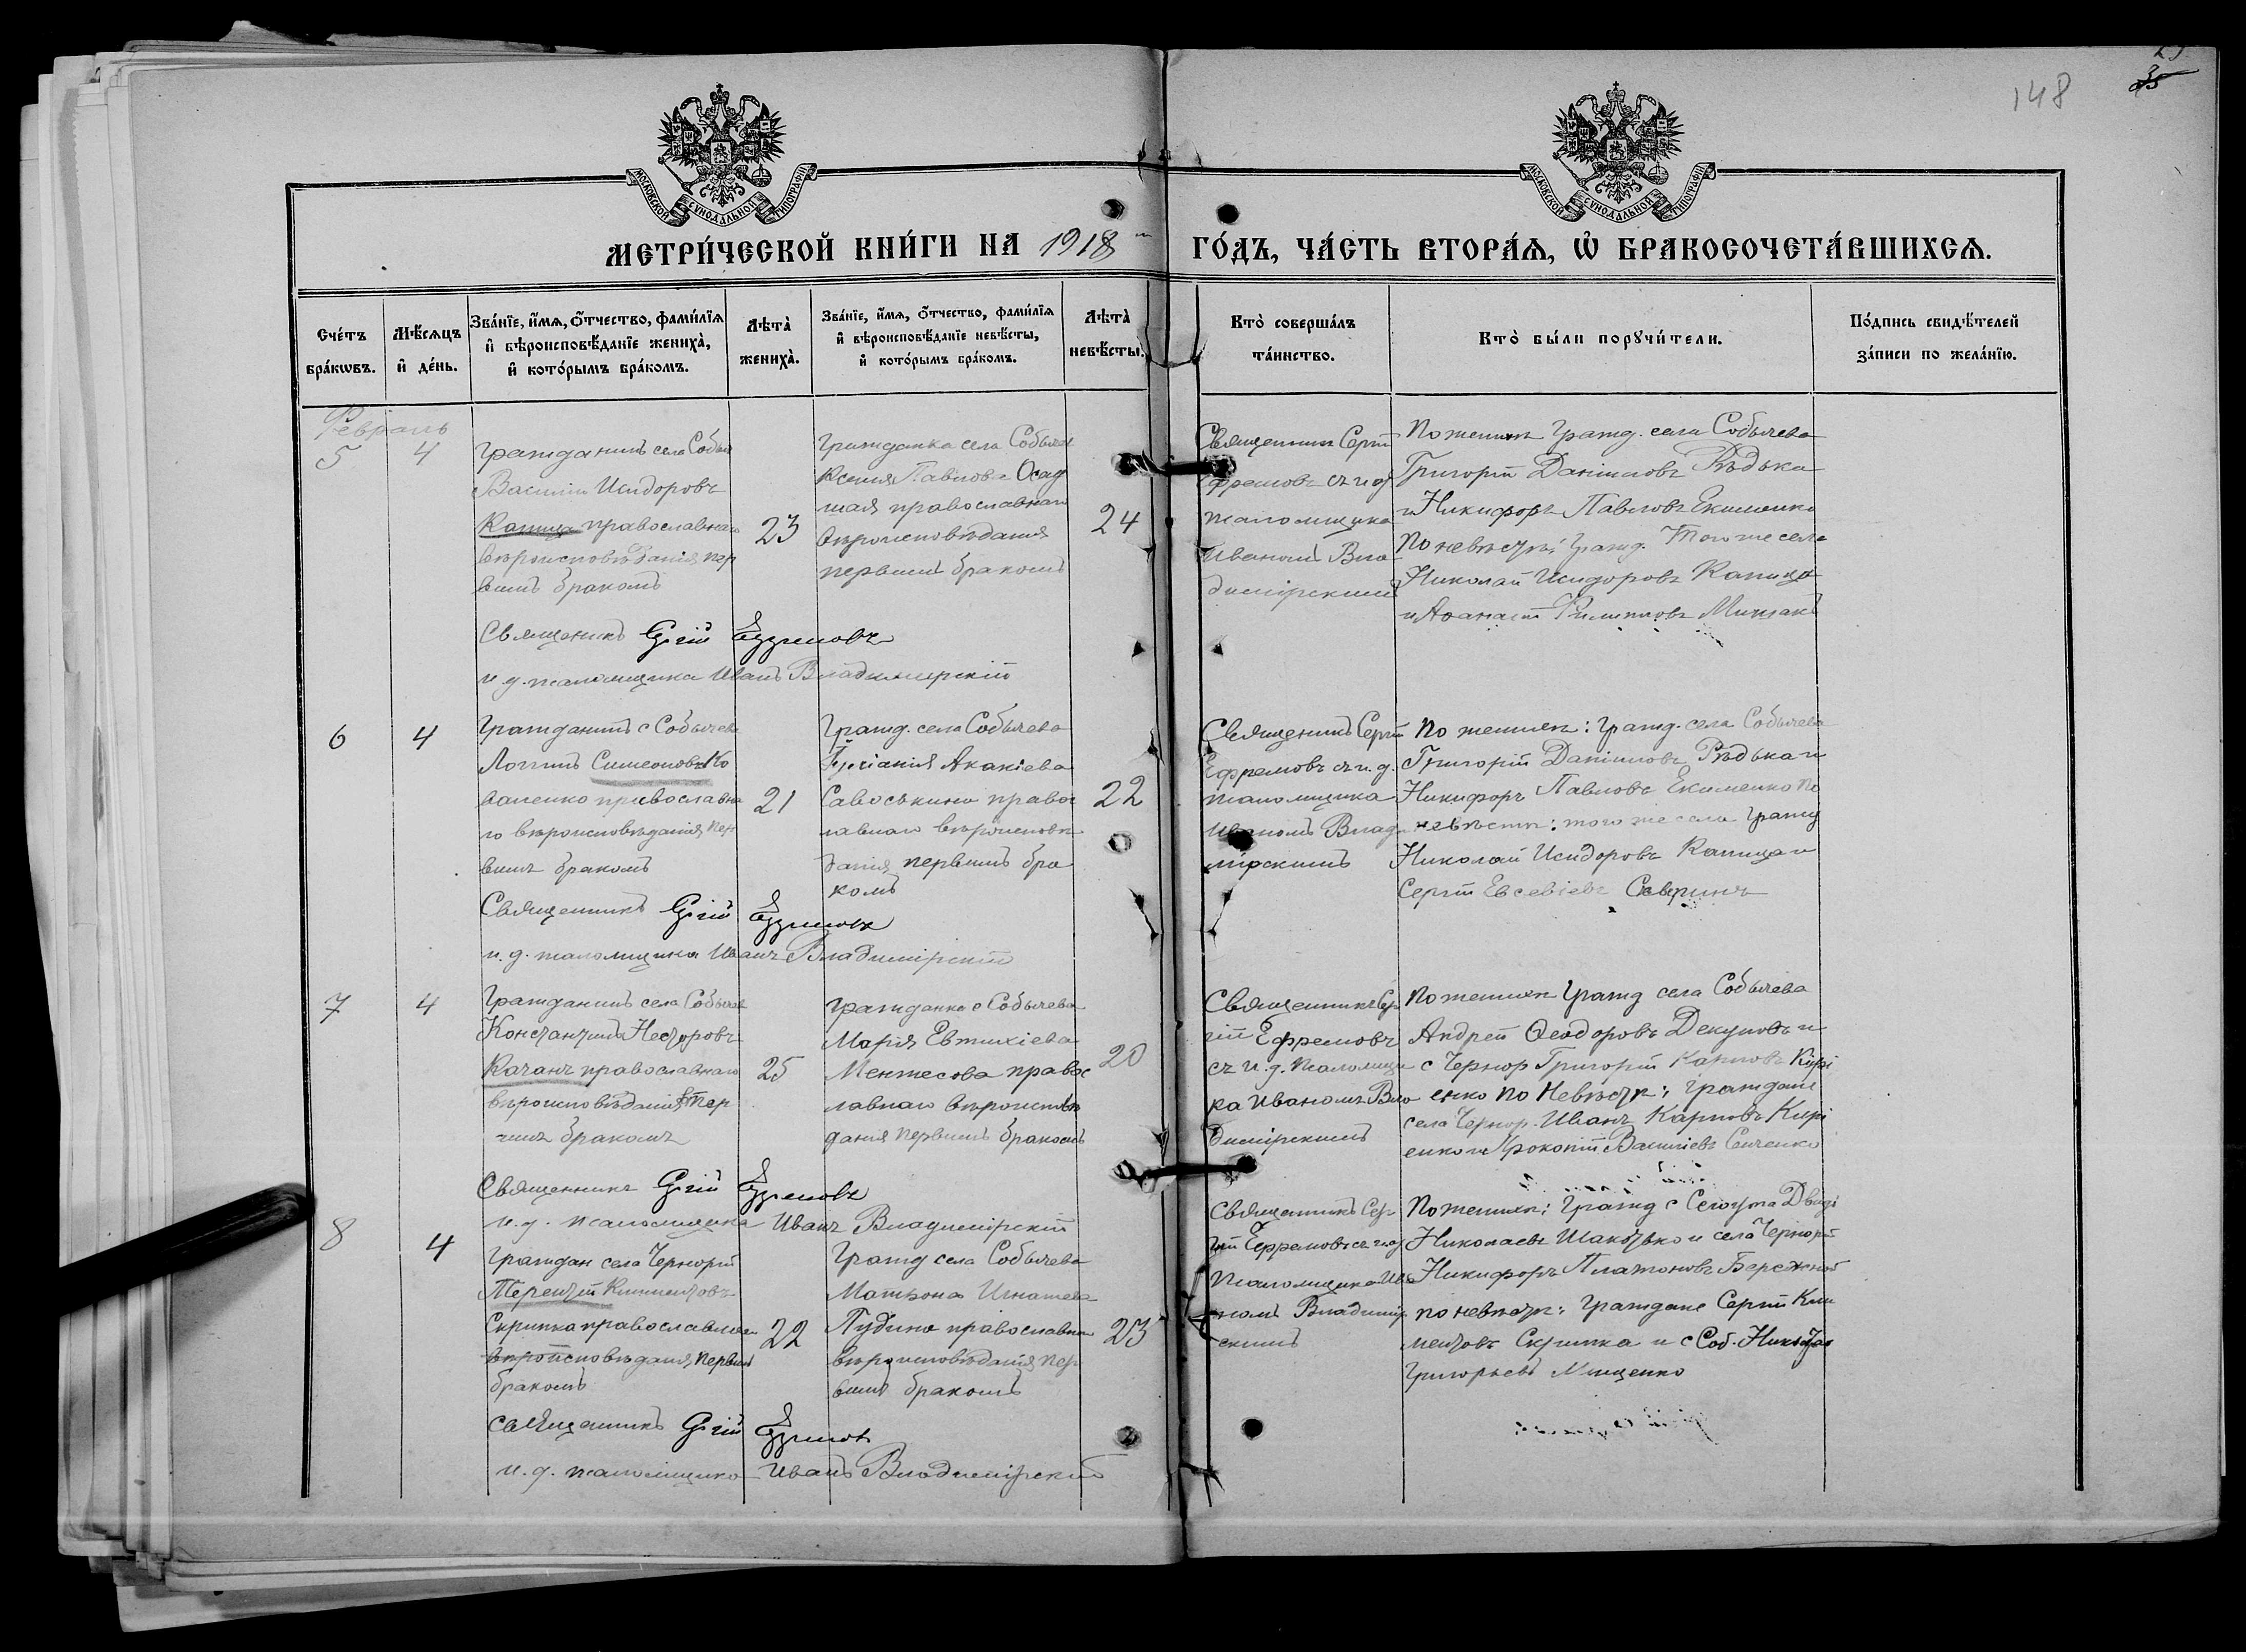 148
35
МОСКОВСКОЙ СѴНОДАЛЬНОЙ ТИПОГРАФІИ
МОСКОВСКОЙ СѴНОДАЛЬНОЙ ТИПОГРАФІИ
МЕТРИ́ЧЕСКОЙ КНИ́ГИ НА 1918
ГО́ДЪ, ЧА́СТЬ ВТОРА́Ѧ, Ѡ҆ БРАКОСОЧЕТА́ВШИХСѦ.
Сче́тъ бра́кѡвъ.
Мѣ́сѧцъ и҆ де́нь.
Зва́нїе, и҆́мѧ, ѻ҆́тчество, фами́лїѧ и҆ вѣроисповѣ́данїе жениха̀, и҆ кото́рымъ бра́комъ.
Лѣта̀ жениха̀.
Зва́нїе, и҆́мѧ, ѻ҆́тчество, фами́лїѧ и҆ вѣроисповѣ́данїе невѣ́сты, и҆ кото́рымъ бра́комъ.
Лѣта̀ невѣ́сты.
Кто̀ соверша́лъ та́инство.
Кто̀ бы́ли порꙋчи́тели.
По́дпись свидѣ́телей за́писи по жела́нїю.
Февраль
5
4
Гражданинъ села Собыч
Василій Исидоровъ
Капица православнаго
вѣроисповѣданія пер
вымъ бракомъ
23
Гражданка села Собычев
Ксенія Павлова Осад
чая православнаго
вѣроисповѣданія
первымъ бракомъ
24
Священникъ Сергій
Ефремовъ съ и д
псаломщика
Иваномъ Вла
димірскимъ
По женихѣ Гражд. села Собычева
Григорій Даніиловъ Рѣдька
и Никифоръ Павловъ Екименко
По невѣстѣ: Гражд. того же села
Николай Исидоровъ Капица
и Аѳанасій Филипповъ
Священникъ Сергій Ефремовъ
и. д. псаломщика Иванъ Владимірскій
6
4
Гражданинъ с Собычева
Логгинъ Симеоновъ Ко
валенко православна
го вѣроисповѣданія пер
вымъ бракомъ
21
Гражд. села Собычева
Акакіева
Савоськина правос
лавнаго вѣроисповѣ
данія первымъ бра
комъ
22
Священникъ Сергій
Ефремовъ съ и. д.
псаломщика
Иваномъ Влади
мірскимъ
По женихѣ: Гражд. села Собычева
Григорій Даніиловъ Рѣдька и
Никифоръ Павловъ Екименко По
невѣстѣ: того же села Гражд
Николай Исидоровъ Капица и
Сергій Евсевіевъ Савринъ
Священникъ Сергій Ефремовъ
и. д. псаломщика Иванъ Владимірскій
7
4
Гражданинъ села Собычев
Константинъ Несторовъ
Качанъ православнаго
вѣроисповѣданія пер
вымъ бракомъ
25
Гражданка с Собычева
Марія Евтихіева
Ментесова правос
лавнаго вѣроисповѣ
данія первымъ бракомъ
20
Священникъ Сер
гій Ефремовъ
съ и. д. псаломщи
ка Иваномъ Вла
димірскимъ
По женихѣ Гражд села Собычева
Андрей Ѳеодоровъ Декуновъ и
с Чернор Григорій Карповъ Кирі
енко По Невѣстѣ: Граждане
села Чернор. Иванъ Карповъ Кирі
енко и Прокопій Василіевъ Сенченко
Священникъ Сергій Ефремовъ
и. д. псаломщика Иванъ Владимірскій
8
4
Граждан села Чернорій
Терентій Климентовъ
Скрипка православнаго
вѣроисповѣданія, первымъ
бракомъ
22
Гражд села Собычева
Матрона Игнатева
Пудина православнаго
вѣроисповѣданія пер
вымъ бракомъ
23
Священникъ Сер
гій Ефремовъ съ и д
псаломщика Ива
номъ Владимір
скимъ
По женихѣ: Гражд с
Николаевъ и села Чернорій
Никифоръ Платоновъ Бережной
по невѣстѣ: Граждане Сергій Кли
ментовъ Скрипка и с Соб. Николай
Григорьевъ Мищенко
Священникъ Сергій Ефремовъ
и. д. псаломщика Иванъ Владимірскій